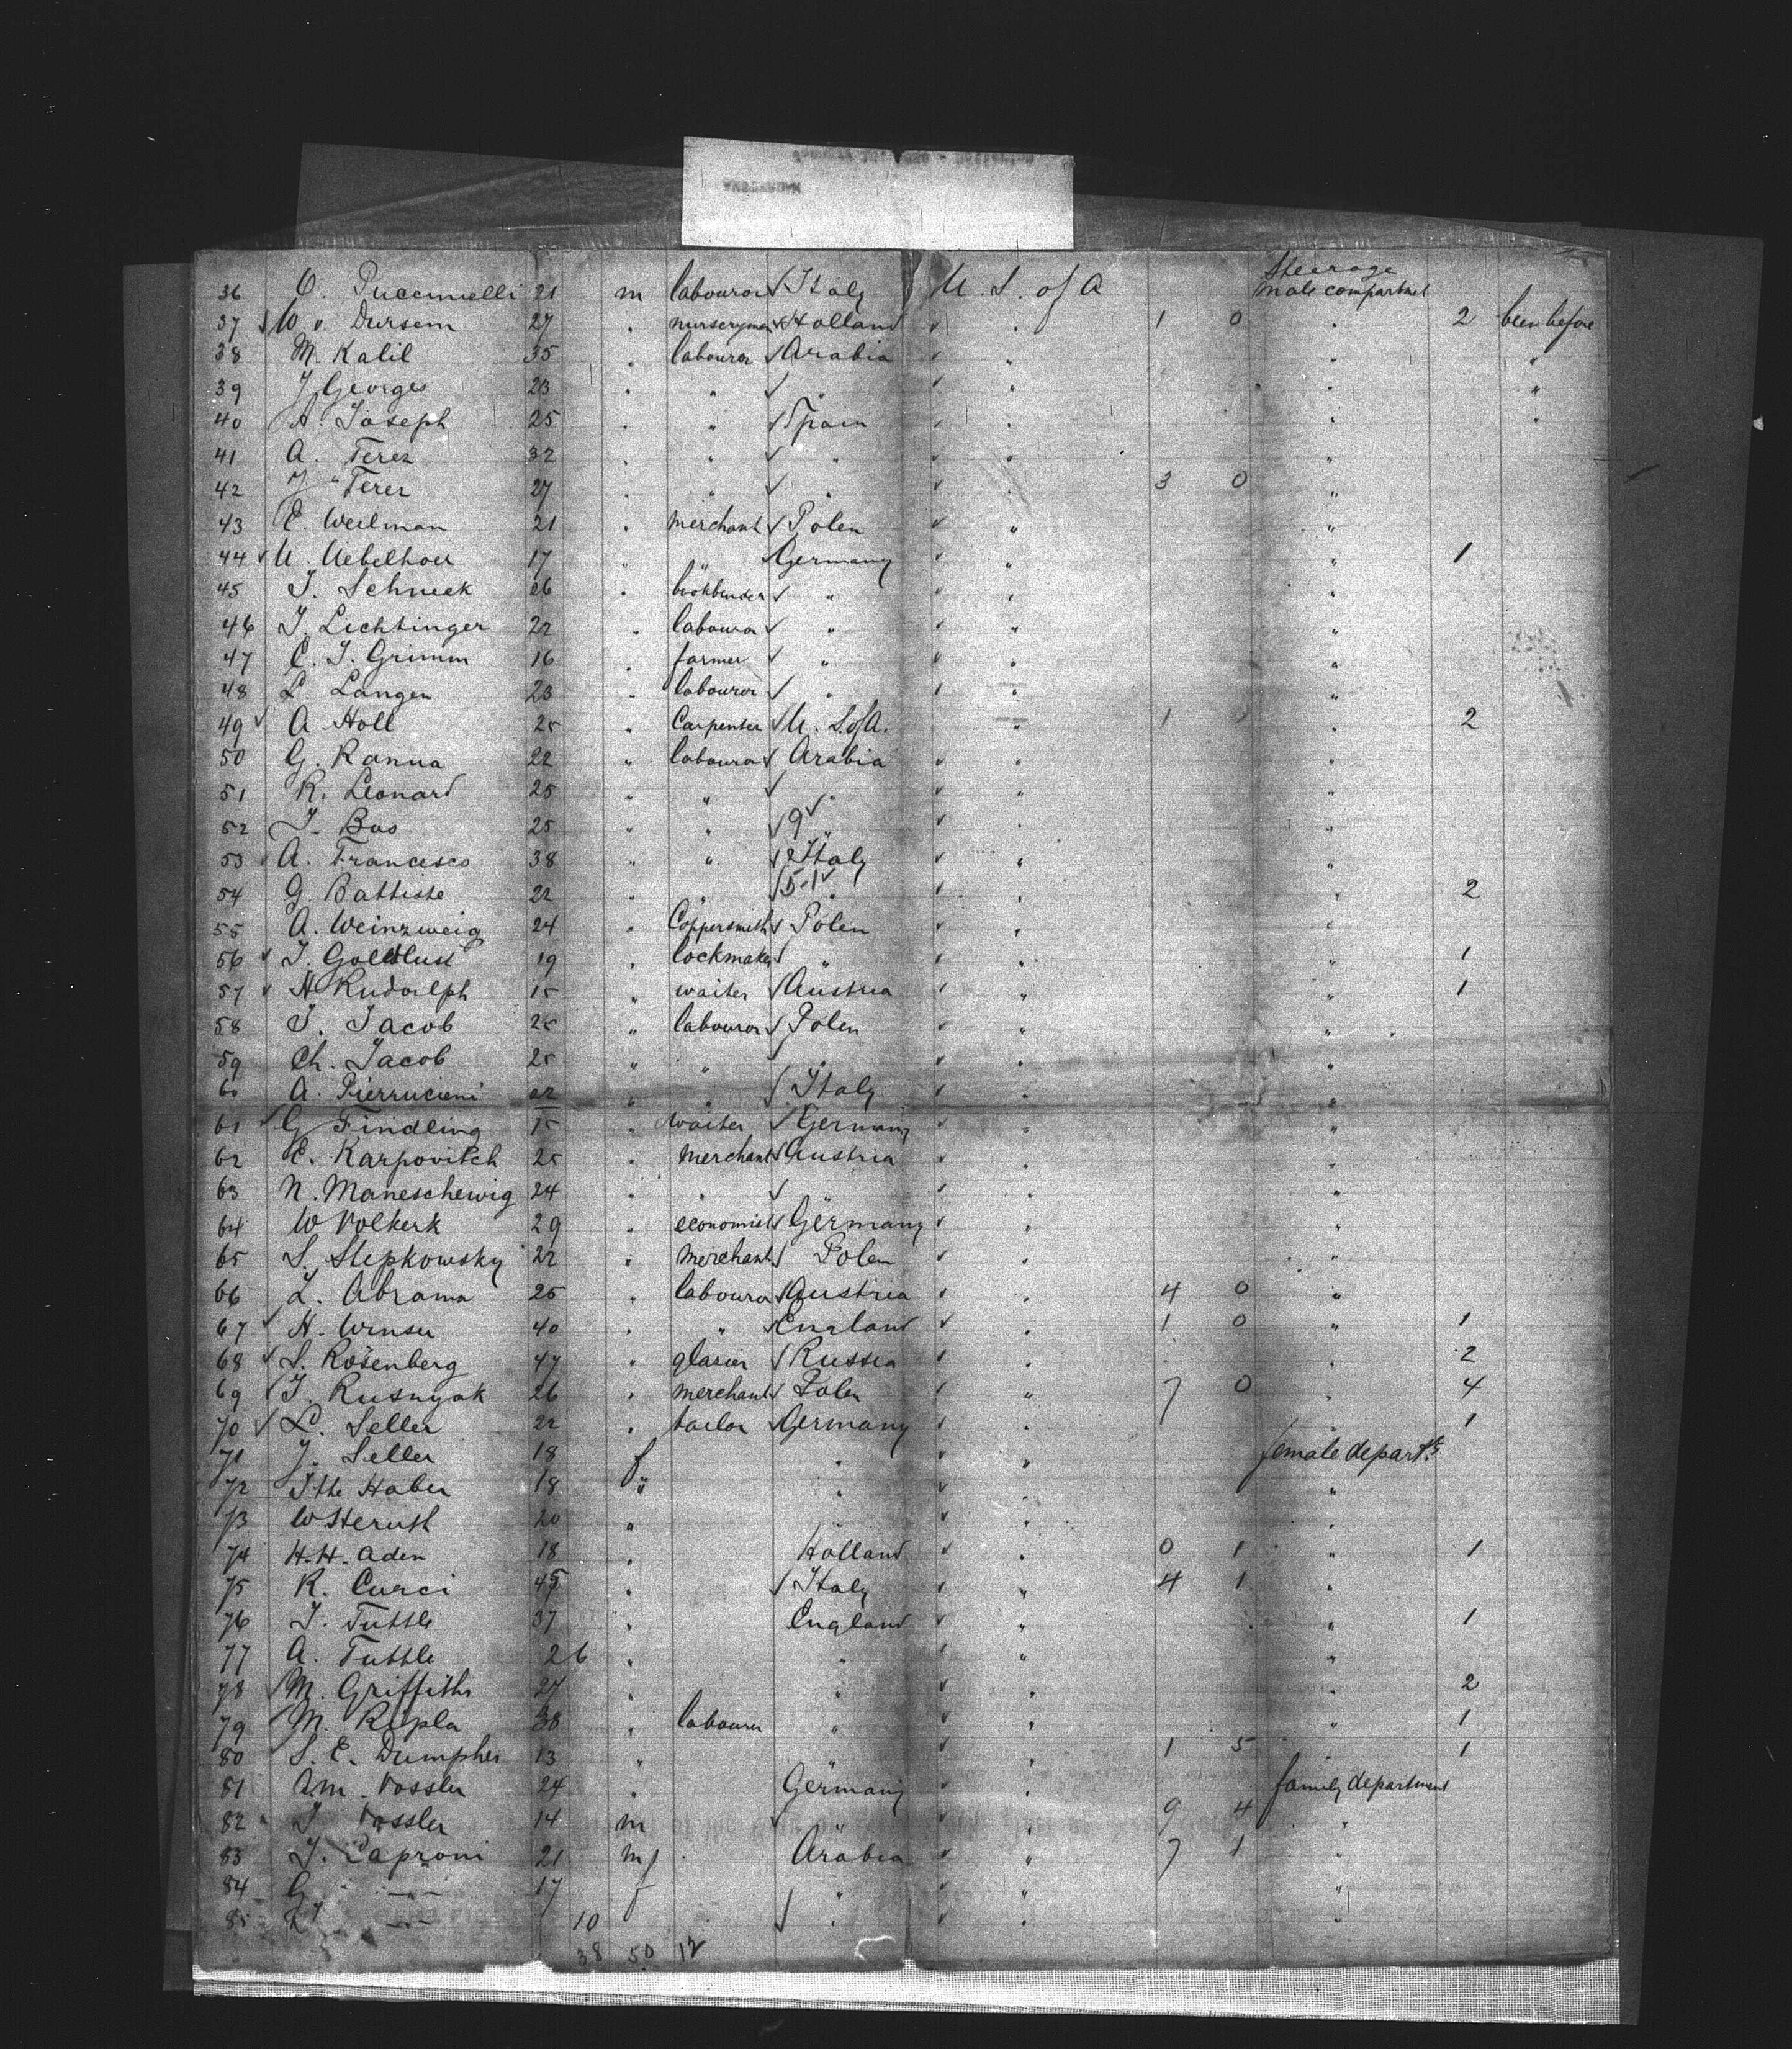 Steerage
36 O. Puccinielli 21 m labouror √ Italy U. S. of A male compartmet
37 √ W v. Dursem 27 " nurseryman √ Holland √ " 1 0 " 2 been before
38 M. Kalil 35 " labourer √ Arabia √ " " "
39 J Georges 23 " " √ " √ " " "
40 A. Joseph 25 " " √ Spain √ " " "
41 A. Ferer 32 " " √ " √ " "
42 J " Ferer 27 " " √ " √ " 3 0 "
43 E. Weilman 21 " merchant √ Polen √ " "
44 √ U. Uebelhoer 17 " " √ Germany √ " " 1
45 J. Schneck 26 " bookbinder √ " √ " "
46 J. Lichtinger 22 " labouror √ " √ " "
47 C. J. Grimm 16 " farmer √ " √ " "
48 L. Langen 23 " labouror √ " √ " "
49 √ A Holl 25 " Carpenter √ U. S. of A. " 1 " 2
50 G. Kanna 22 " labouror √ Arabia √ " "
51 K. Leonard 25 " " √ " √ " "
52 J. Bus 25 " " √ 9 √ " √ " "
53 √ A. Francesco 38 " " √ Italy √ " "
54 G. Battiste 22 " " √ 5-1 √ " √ " " 2
55 A. Weinzweig 24 " Coppersmith √ Polen √ " "
56 √ J. Goldlust 19 " lockmaker √ " √ " " 1
57 √ H Rudolph 15 " waiter √ Austria √ " " 1
58 J. Jacob 25 " labouror √ Polen √ " "
59 Ch. Jacob 25 " " √ " √ " "
60 A. Pierrucieni 22 " " √ Italy √ " "
61 √ G Findling 15 " waiter √ Germany √ " "
62 E. Karpovitch 25 " merchant √ Austria √ " "
63 N. Maneschewig 24 " " √ " √ " "
64 W Volkerk 29 " economist √ Germany √ " "
65 S. Slepkowsky 22 " merchant √ Polen √ " "
66 L. Abrama 25 " labouror √ Austria √ " 4 0 "
67 √ H. Winser 40 " " √ England √ " 1 0 " 1
68 √ S. Rosenberg 47 " glasier √ Russia √ " " 2
69 √ J. Rusnyak 26 " merchant √ Polen √ " 7 0 " 4
70 √ L. Seller 22 " tailor √ Germany √ " " 1
71 J. Seller 18 f " √ " female depart.
72 Itte Haber 18 " " √ " "
73 W Sterush 20 " " √ " "
74 H. H. Aden 18 " Holland √ " 0 1 " 1
75 R. Curci 45 " √ Italy √ " 4 1 "
76 J. Tuttle 37 " England √ " " 1
77 A. Tuttle 26 " " √ " "
78 √ M. Griffiths 27 " " √ " " 2
79 M. Ripla 38 " labourer " √ " " 1
80 S. E. Dumpher 13 " " √ " 1 5 " 1
81 Am. Vossler 24 " Germany √ " family department
82 J Vossler 14 m √ " √ " 9 4 "
83 J. Caproni 21 m f Arabia √ " 7 1 "
84 G. —"— 17 f " √ " "
85 —"— 10 √ " √ " "
38 50 12